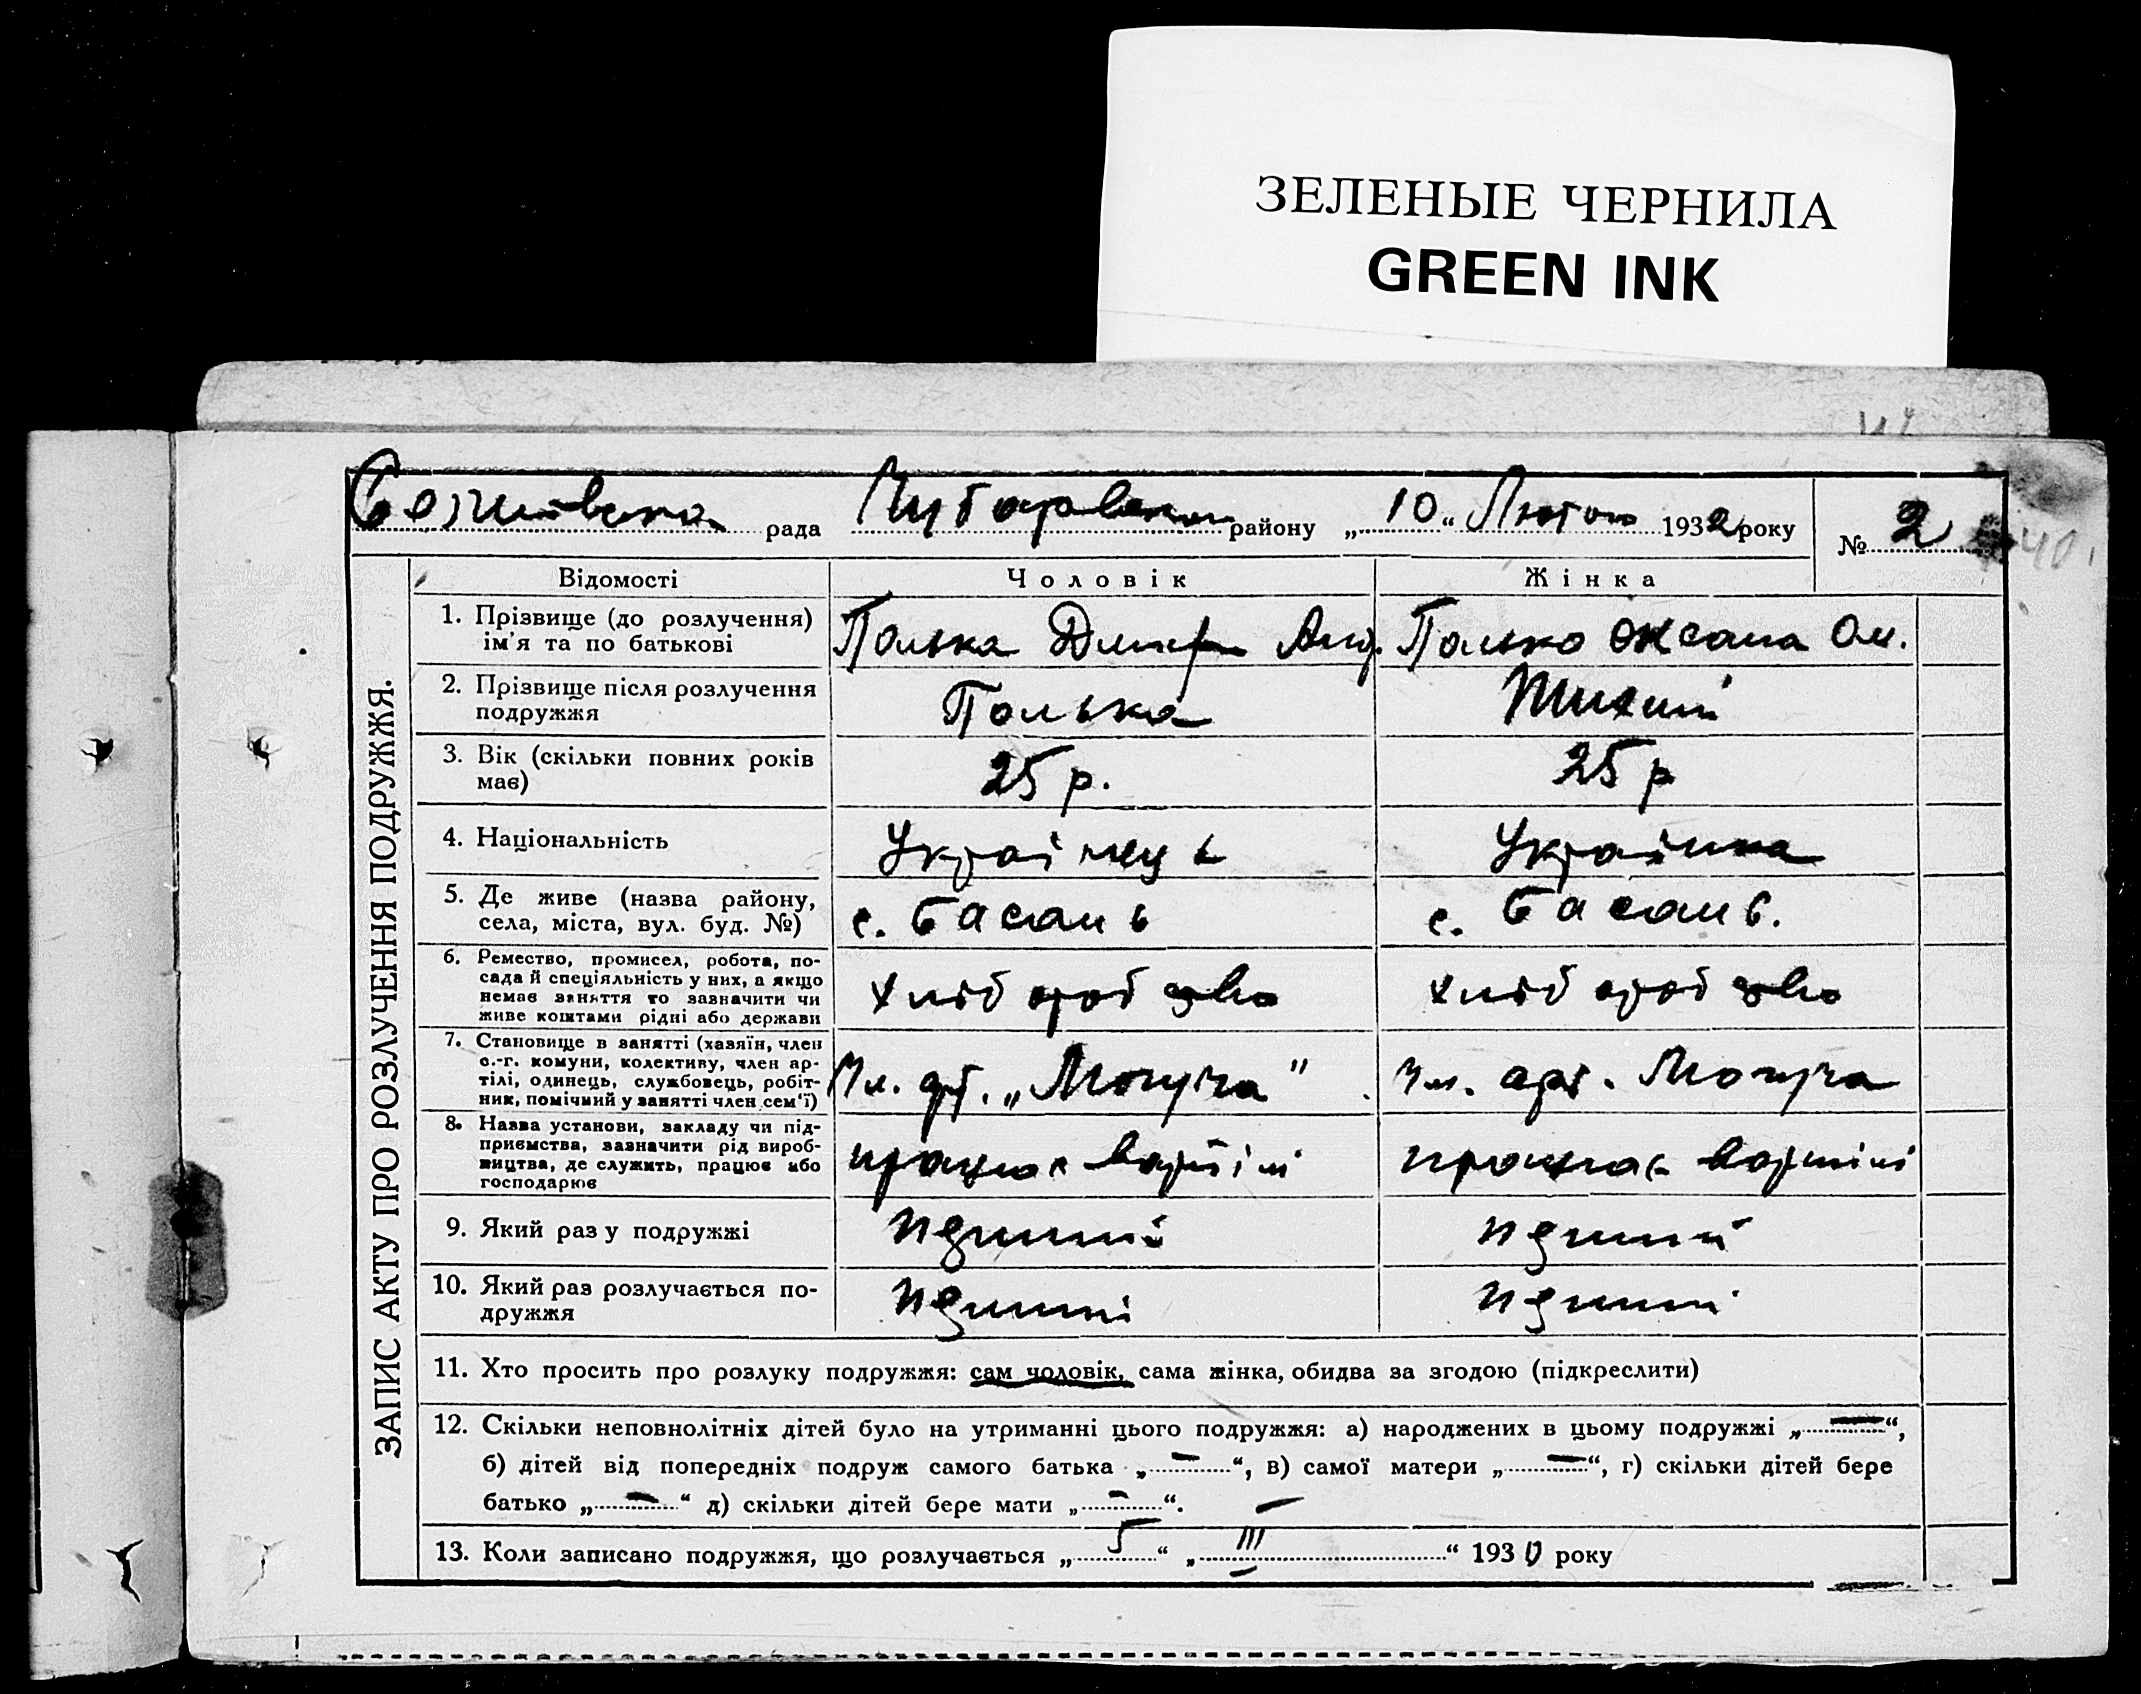 ЗЕЛЕНЫЕ ЧЕРНИЛА
GREEN INK
рада Чубарівського району „10“ Лютого 1932 року № 2
ЗАПИС АКТУ ПРО РОЗЛУЧЕННЯ ПОДРУЖЖЯ.
Відомості Чоловік Жінка
1. Прізвище (до розлучення)
ім'я та по батькові
Полька Дмитро Анд. Полька Оксана Ом.
2. Прізвище після розлучення
подружжя
Полька
3. Вік (скільки повних років
має)
25 р. 25 р
4. Національність
Українець Українка
5. Де живе (назва району,
села, міста, вул. буд. №)
с. Басань с. Басань.
6. Ремество, промисел, робота, по-
сада й спеціяльність у них, а якщо
немає заняття то зазначити чи
живе коштами рідні або держави
хліборобство хліборобство
7. Становище в занятті (хазяїн, член
с.-г. комуни, колективу, член ар-
тілі, одинець, службовець, робіт-
ник, помічний у занятті член сем'ї)
Чл. арт. „Могуча" Чл. арт. Могуча
8. Назва установи, закладу чи під-
приємства, зазначити рід вироб-
ництва, де служить, працює або
господарює
працює в артілі працює в артілі
9. Який раз у подружжі
10. Який раз розлучається по-
дружжя
11. Хто просить про розлуку подружжя: сам чоловік, сама жінка, обидва за згодою (підкреслити)
12. Скільки неповнолітніх дітей було на утриманні цього подружжя: а) народжених в цьому подружжі „—“,
б) дітей від попередніх подруж самого батька „—“, в) самої матери „—“, г) скільки дітей бере
батько „—“ д) скільки дітей бере мати „—“.
13. Коли записано подружжя, що розлучається „5“ „III“ 1930 року